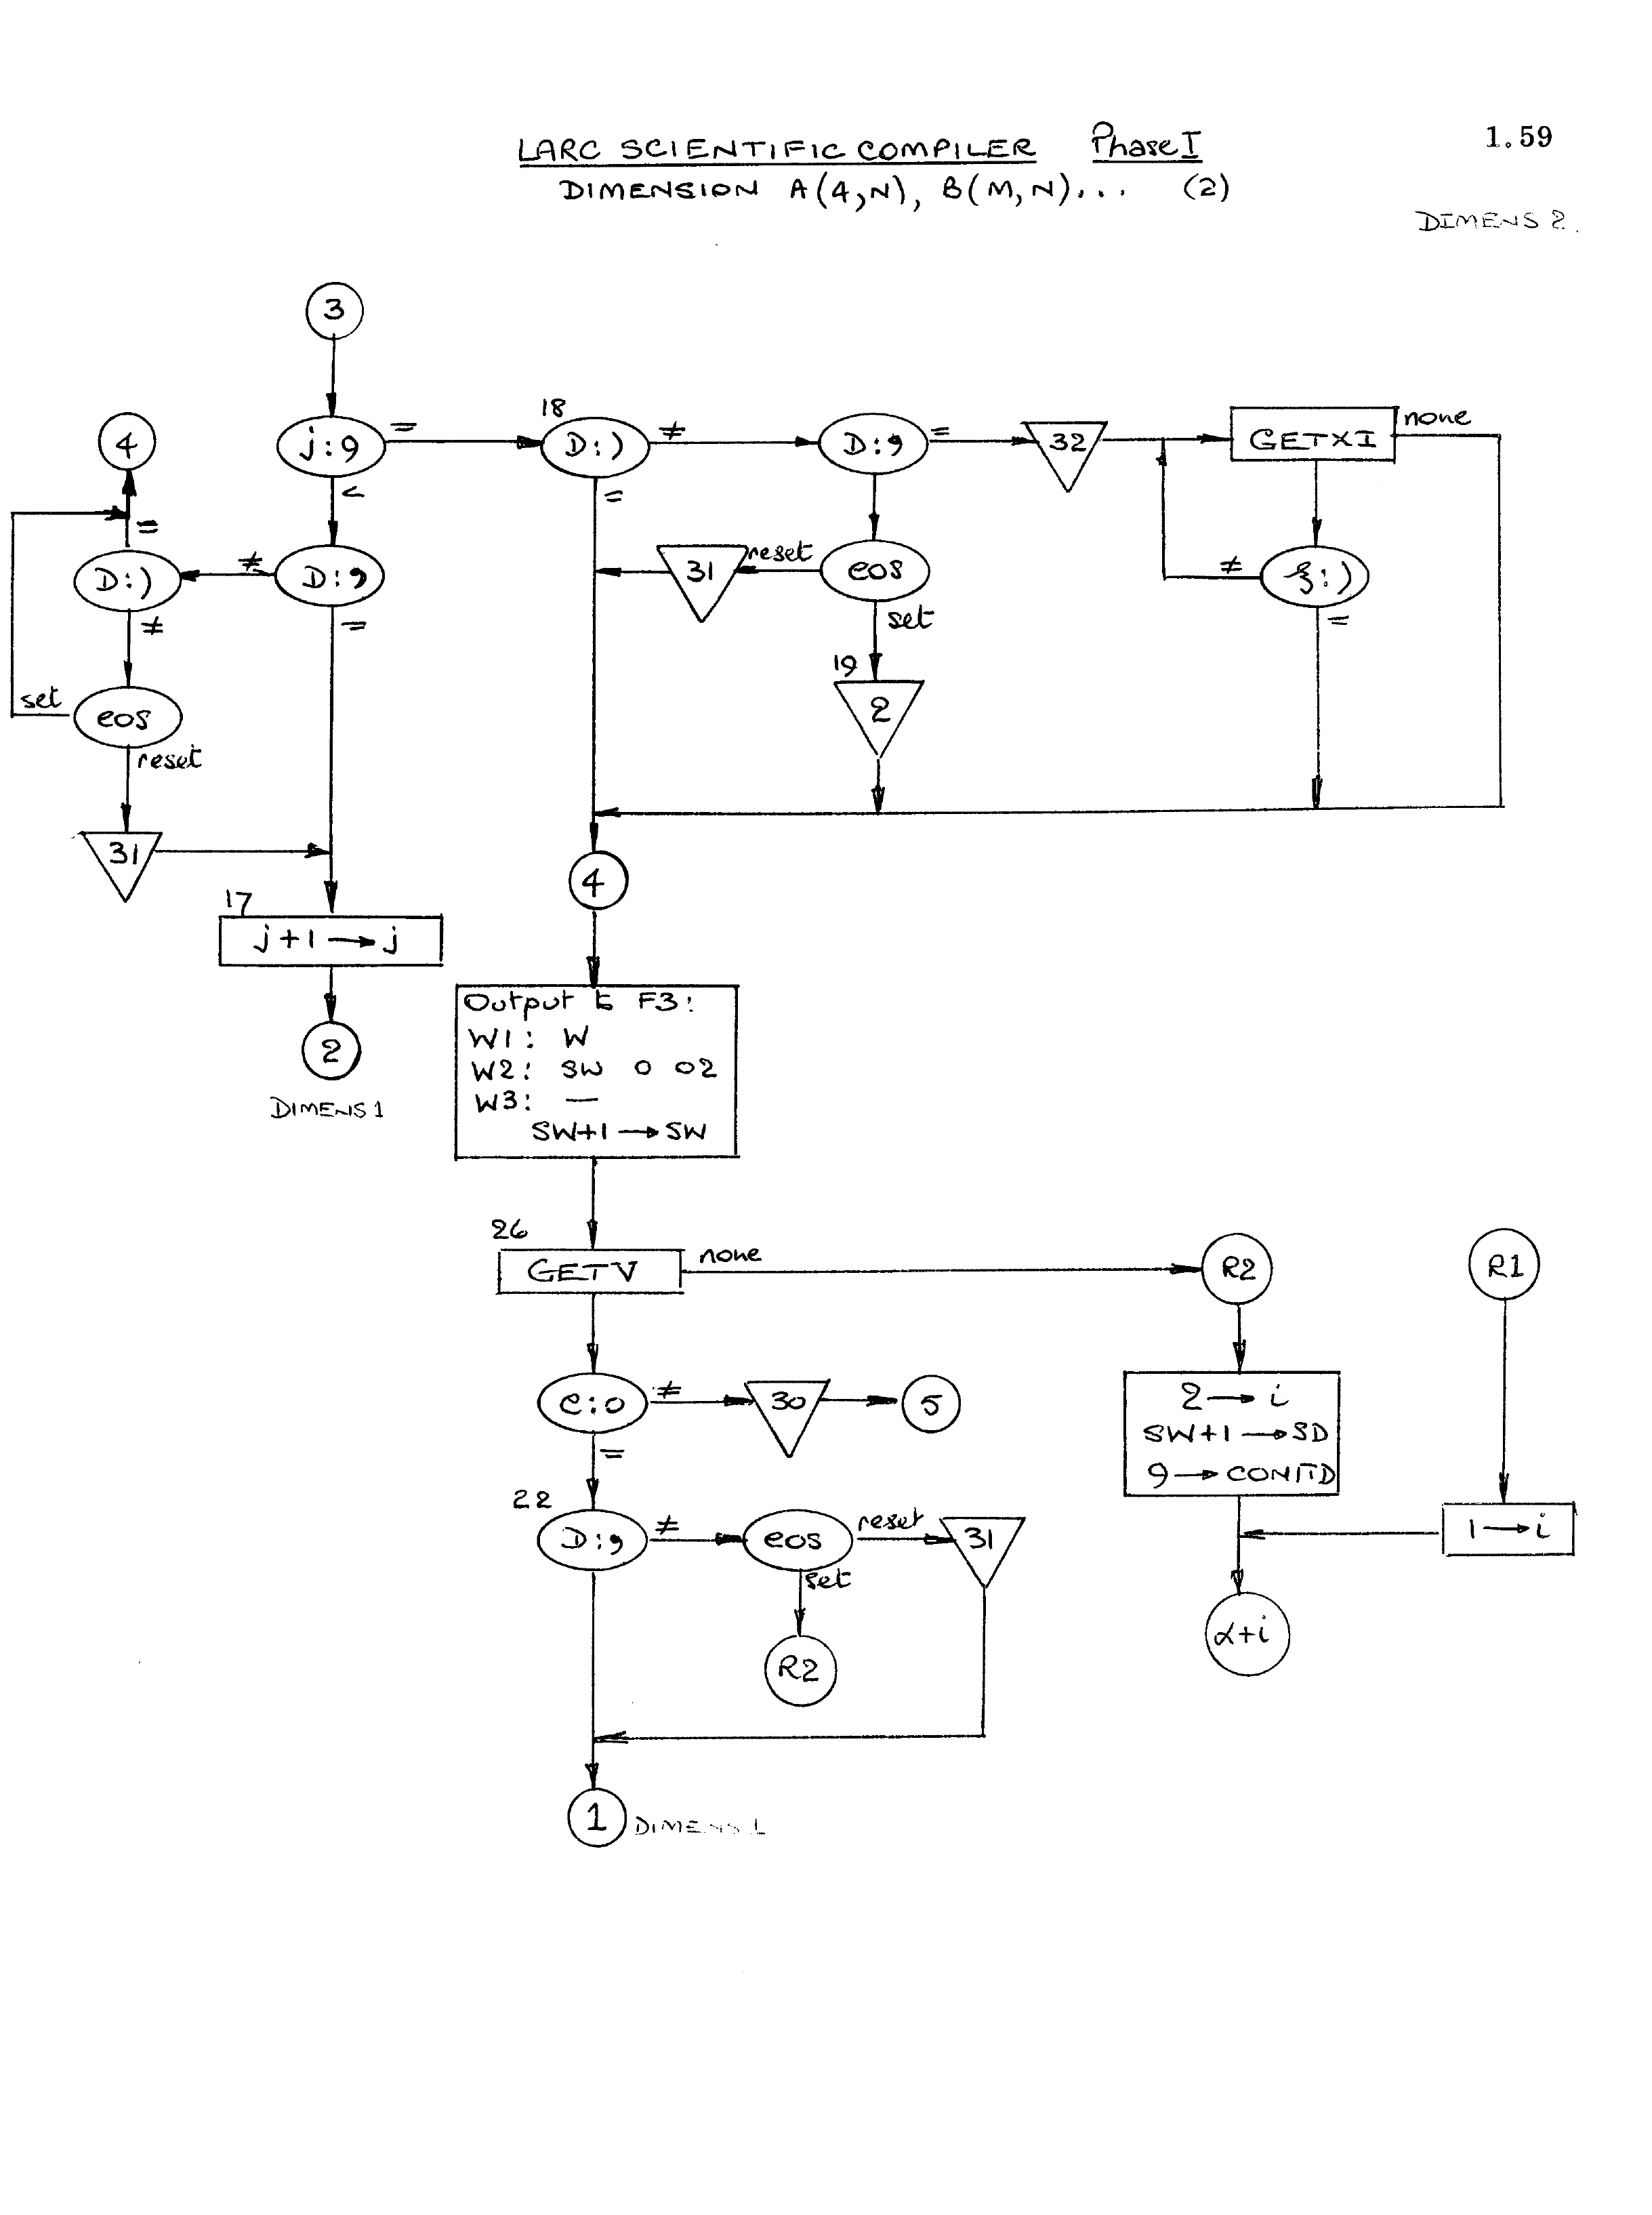 LARC SCIENTIFIC COMPILER Phase I
1.59
DIMENSION A(4,N), B(M,N)... (2)
DIMENS 2.
3
4
j:9
=
<
18
D:)
≠
=
D:,
=
32
GETXI
none
D:)
=
≠
≠
D:,
=
31
reset
eos
set
≠
ξ:)
=
set
eos
reset
19
2
31
17
j+1 → j
2
DIMENS 1
4
Output to F3:
W1: W
W2: SW 0 02
W3: —
SW+1 → SW
26
GETV
none
R2
R1
e:0
≠
=
30
5
2 → i
SW+1 → SD
9 → CONTD
22
D:,
≠
eos
reset
set
31
1 → i
R2
α+i
1
DIMENS 1